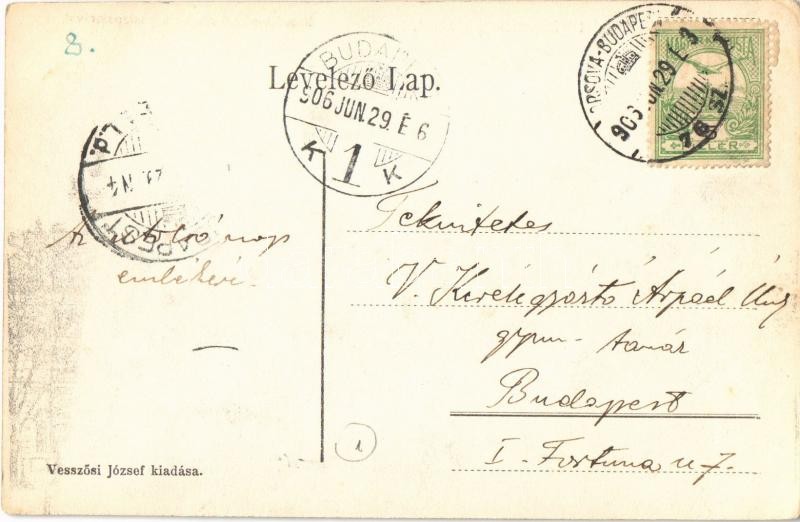 8.
Levelező Lap.
BUDAPEST
906 JUN. 29. É 6
K 1 K
ORSOVA-BUDAPEST
906 JUN. 29. É
76 SZ.
MAGYAR POSTA
FILLÉR
Az utolsó nap
emlékéül.
Tekintetes
V. Kerélgyártó Árpád Úrnak
gymn. tanár
Budapest
I. Fortuna u 7.
1
Vesszősi József kiadása.